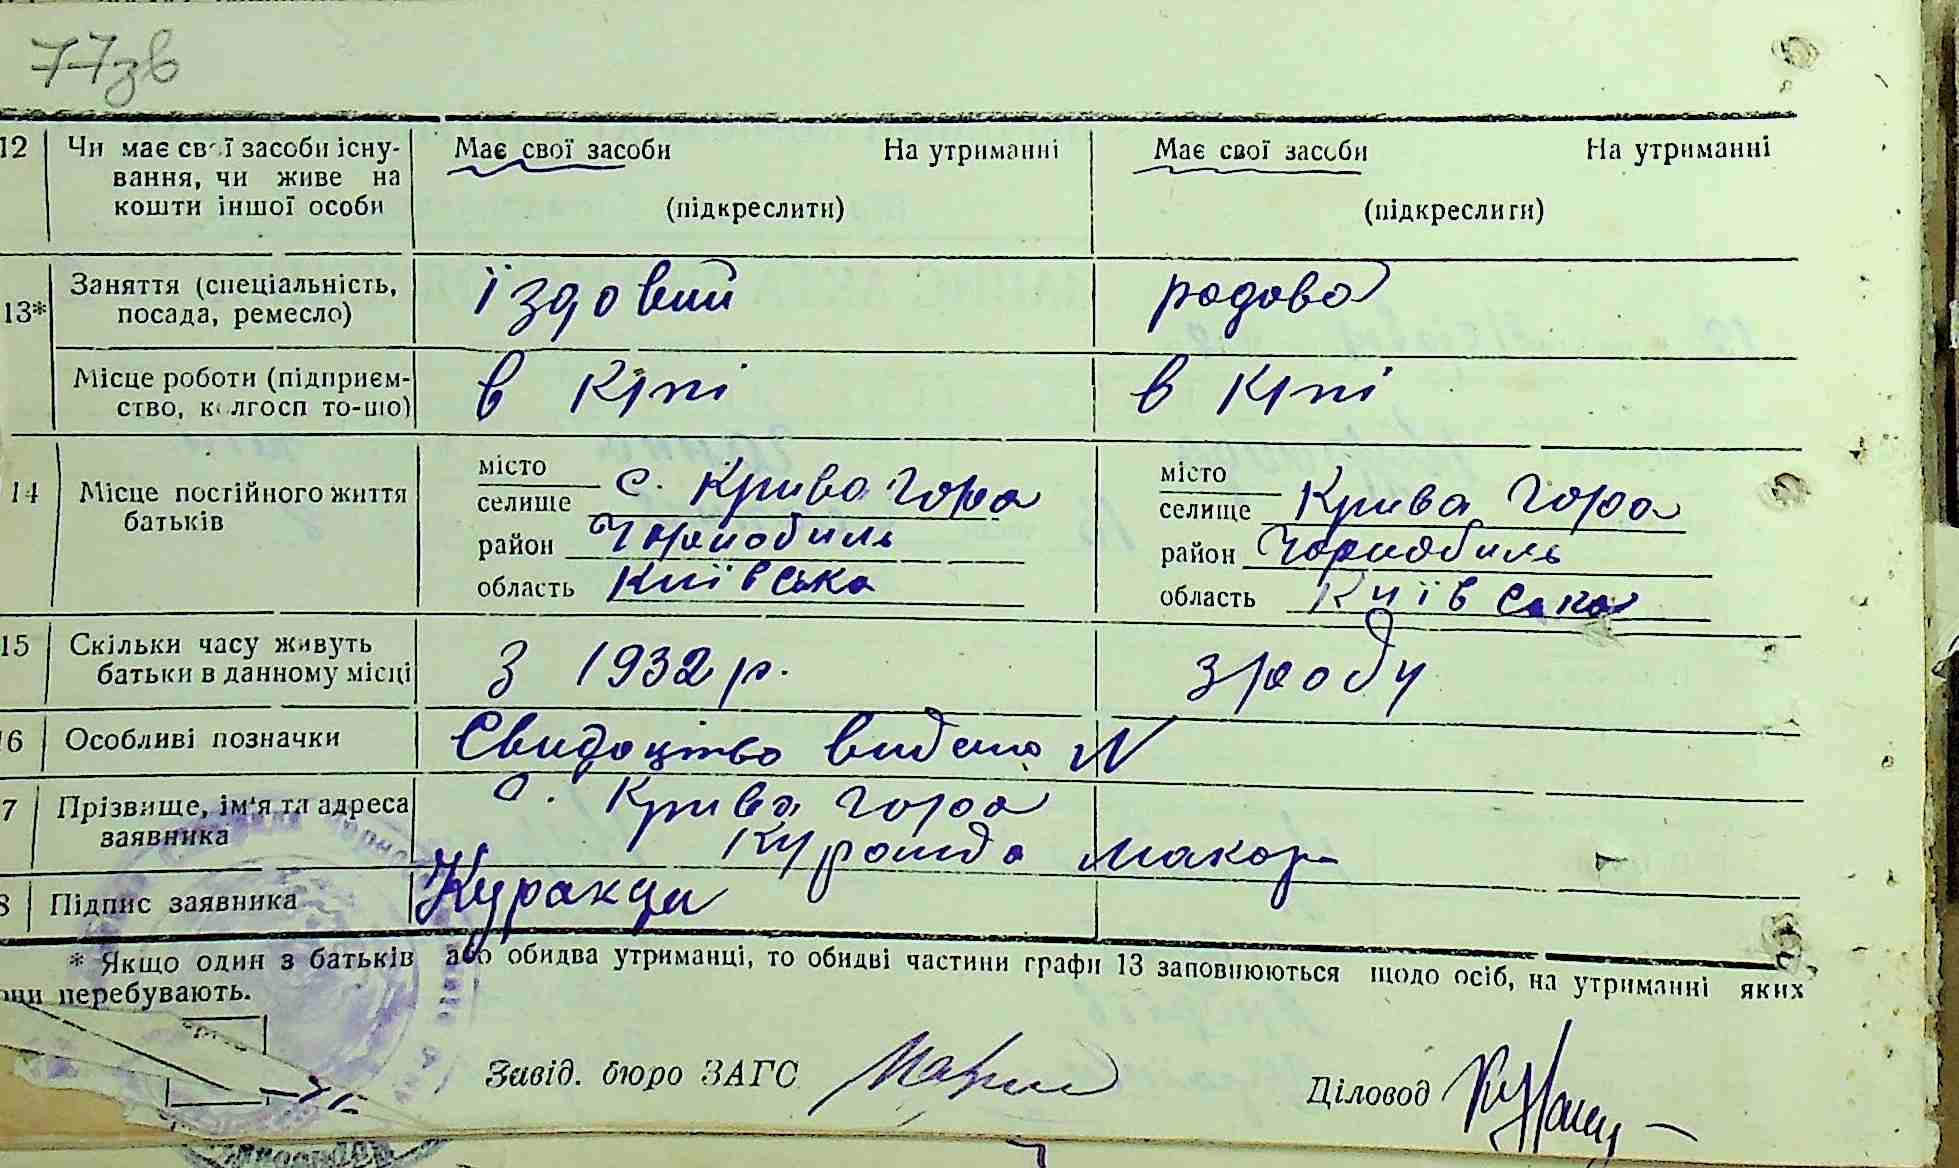 77зв
12 Чи має свої засоби існу- Має свої засоби На утриманні Має свої засоби На утриманні
вання, чи живе на
кошти іншої особи (підкреслити) (підкреслити)
13* Заняття (спеціальність, їздовий родова
посада, ремесло)
Місце роботи (підприєм- в к/гпі в к/гпі
ство, колгосп то-що)
14 Місце постійного життя місто с. Крива гора місто Крива гора
батьків селище селище
район Чорнобиль район Чорнобиль
область Київська область Київська
15 Скільки часу живуть З 1932 р. з роду
батьки в данному місці
16 Особливі позначки Свидоцтво видано N
17 Прізвище, ім'я та адреса с. Крива гора
заявника Куранда Макар
18 Підпис заявника Куранда
* Якщо один з батьків або обидва утриманці, то обидві частини графи 13 заповнюються щодо осіб, на утриманні яких
они перебувають.
Завід. бюро ЗАГС Діловод